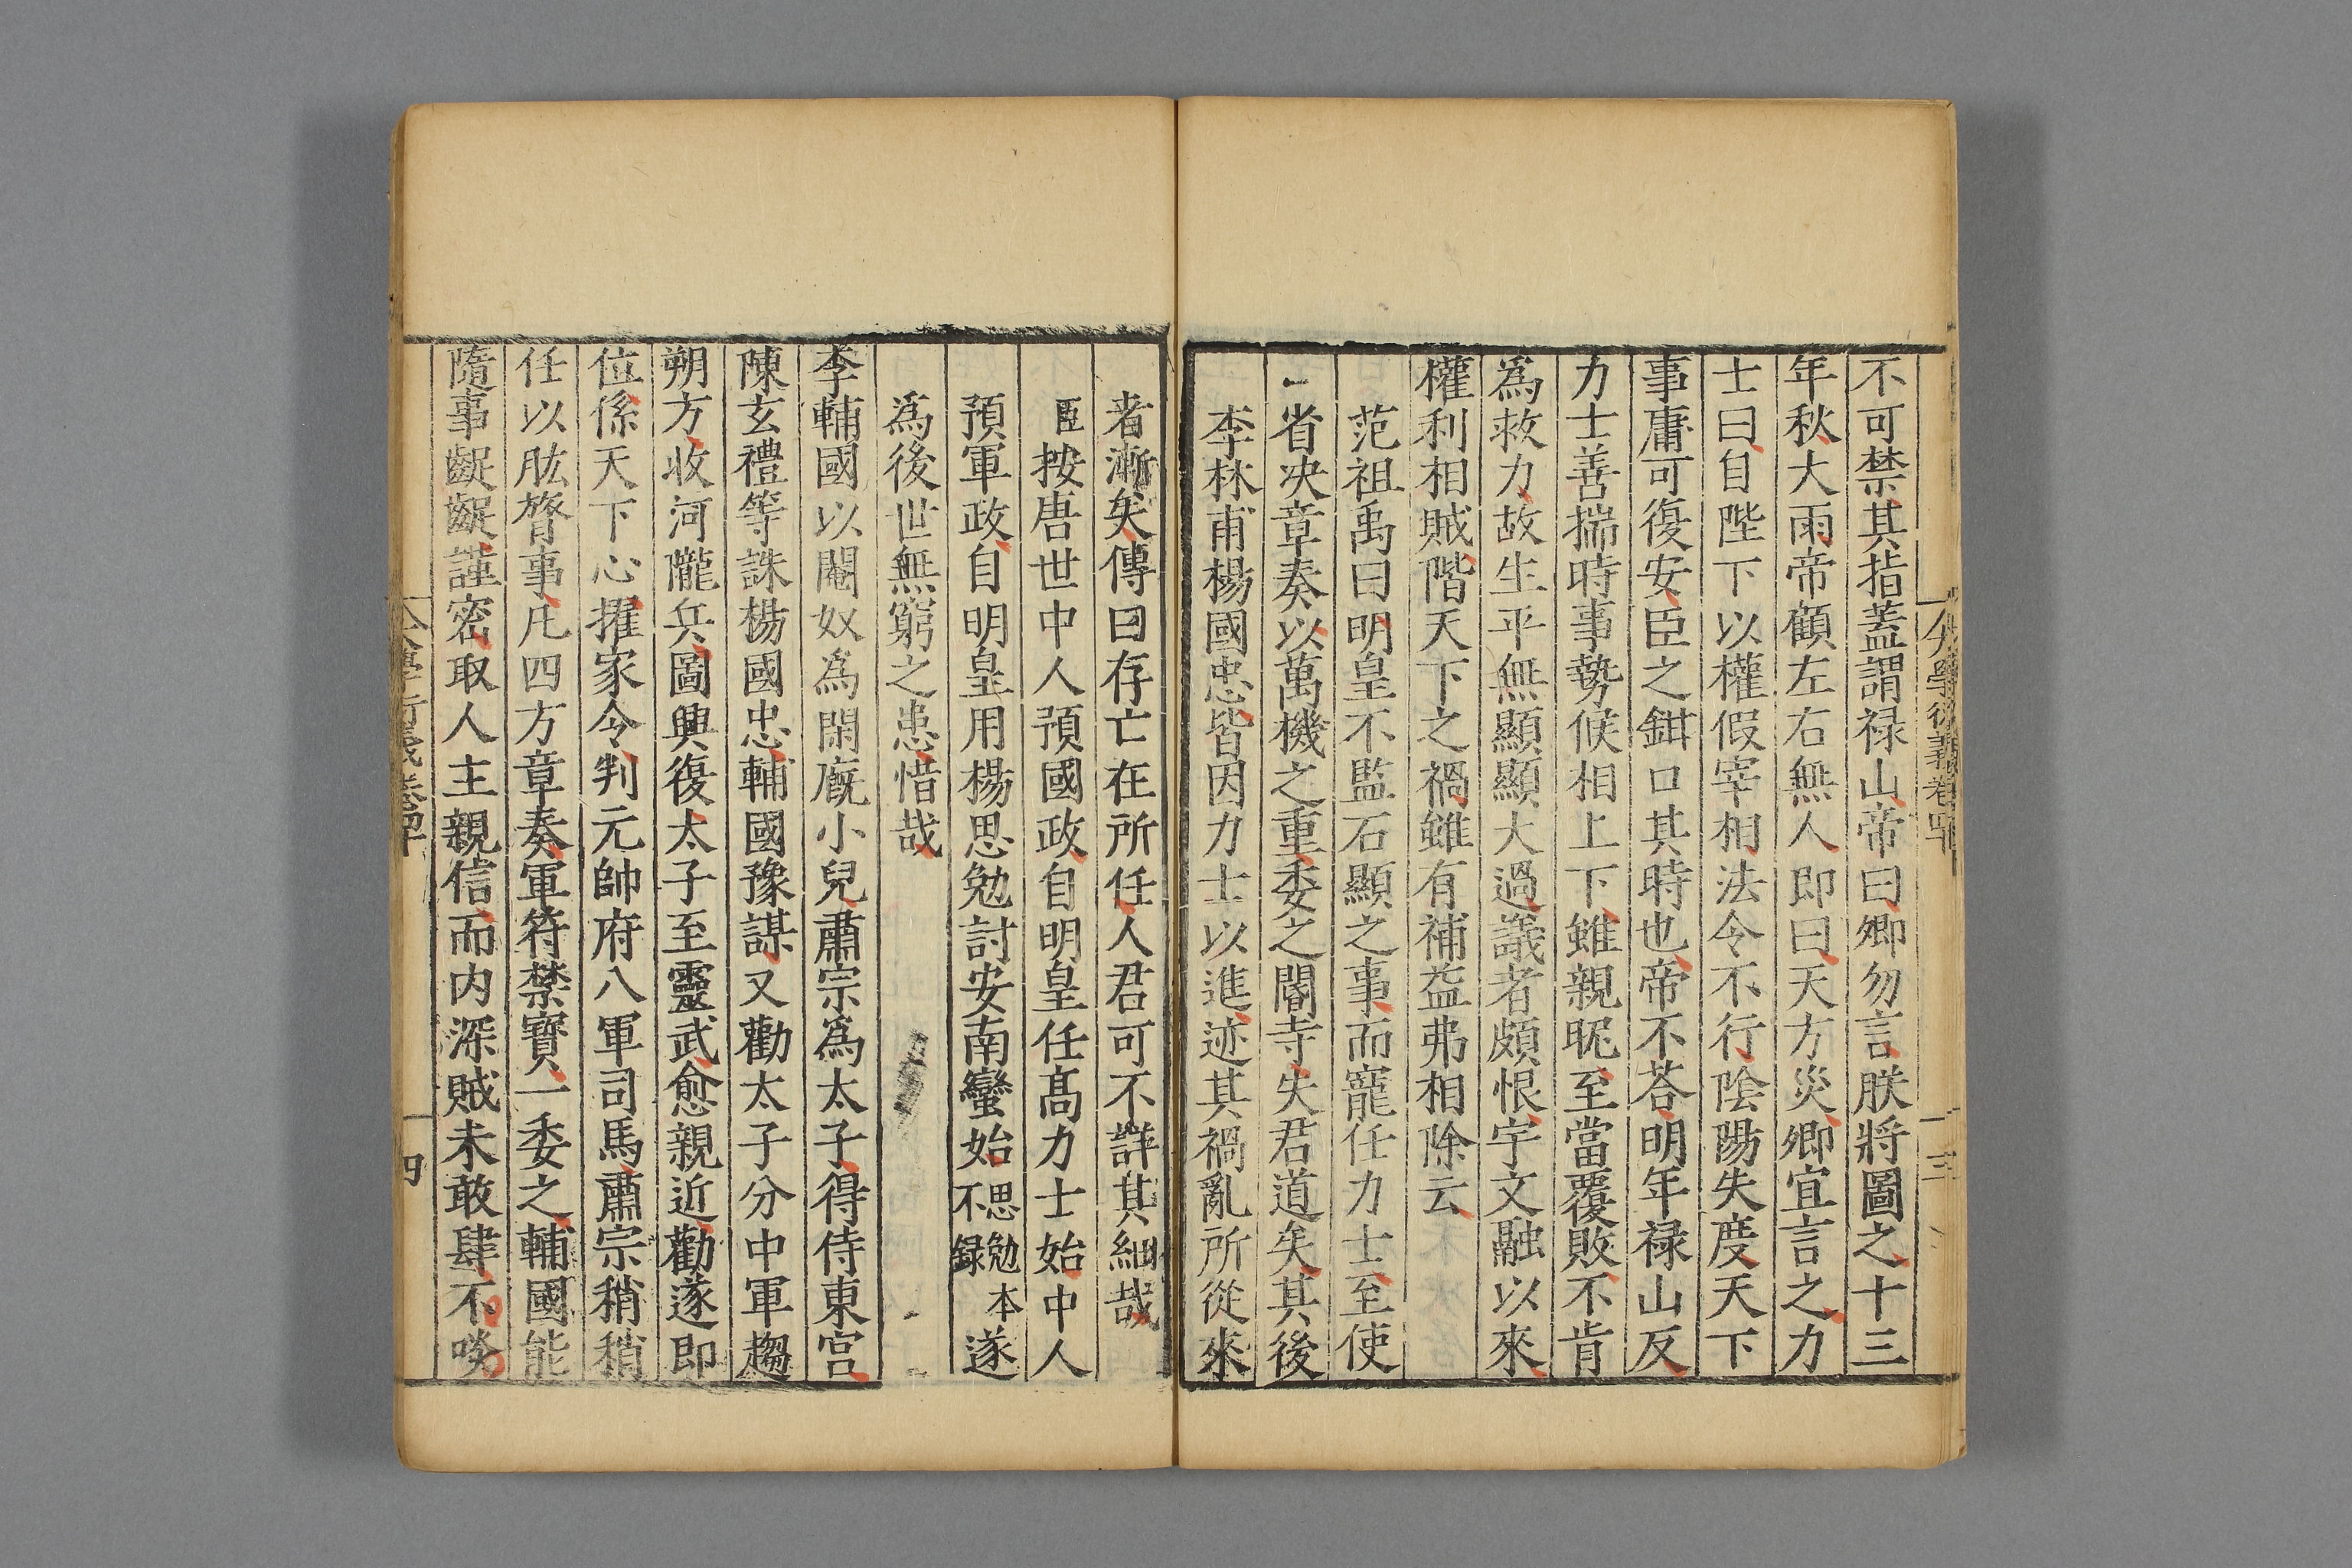 大學衍義卷四十
三
不可禁其指蓋謂禄山帝曰卿勿言朕將圖之十三
年秋大雨帝顧左右無人即曰天方災卿宜言之力
士曰自陛下以權假宰相法令不行陰陽失度天下
事庸可復安臣之鉗口其時也帝不荅明年禄山反
力士善揣時事勢候相上下雖親昵至當覆敗不肯
爲救力故生平無顯顯大過議者頗恨宇文融以來
權利相賊階天下之禍雖有補益弗相除云
范祖禹曰明皇不監石顯之事而寵任力士至使
省决章奏以萬機之重委之閽寺失君道矣其後
李林甫楊國忠皆因力士以進迹其禍亂所從來
者漸矣傳曰存亡在所任人君可不詳其細哉
臣按唐世中人預國政自明皇任髙力士始中人
預軍政自明皇用楊思勉討安南蠻始思勉本不録遂
爲後世無窮之患惜哉
李輔國以閹奴爲閑廐小兒肅宗爲太子得侍東宫
陳玄禮等誅楊國忠輔國豫謀又勸太子分中軍趨
朔方收河隴兵圖興復太子至靈武愈親近勸遂即
位係天下心擢家令判元帥府八軍司馬肅宗稍稍
任以肱膂事凡四方章奏軍符禁寶一委之輔國能
隨事齪齪謹密取人主親信而内深賊未敢肆不啖
大學衍義卷四十
四